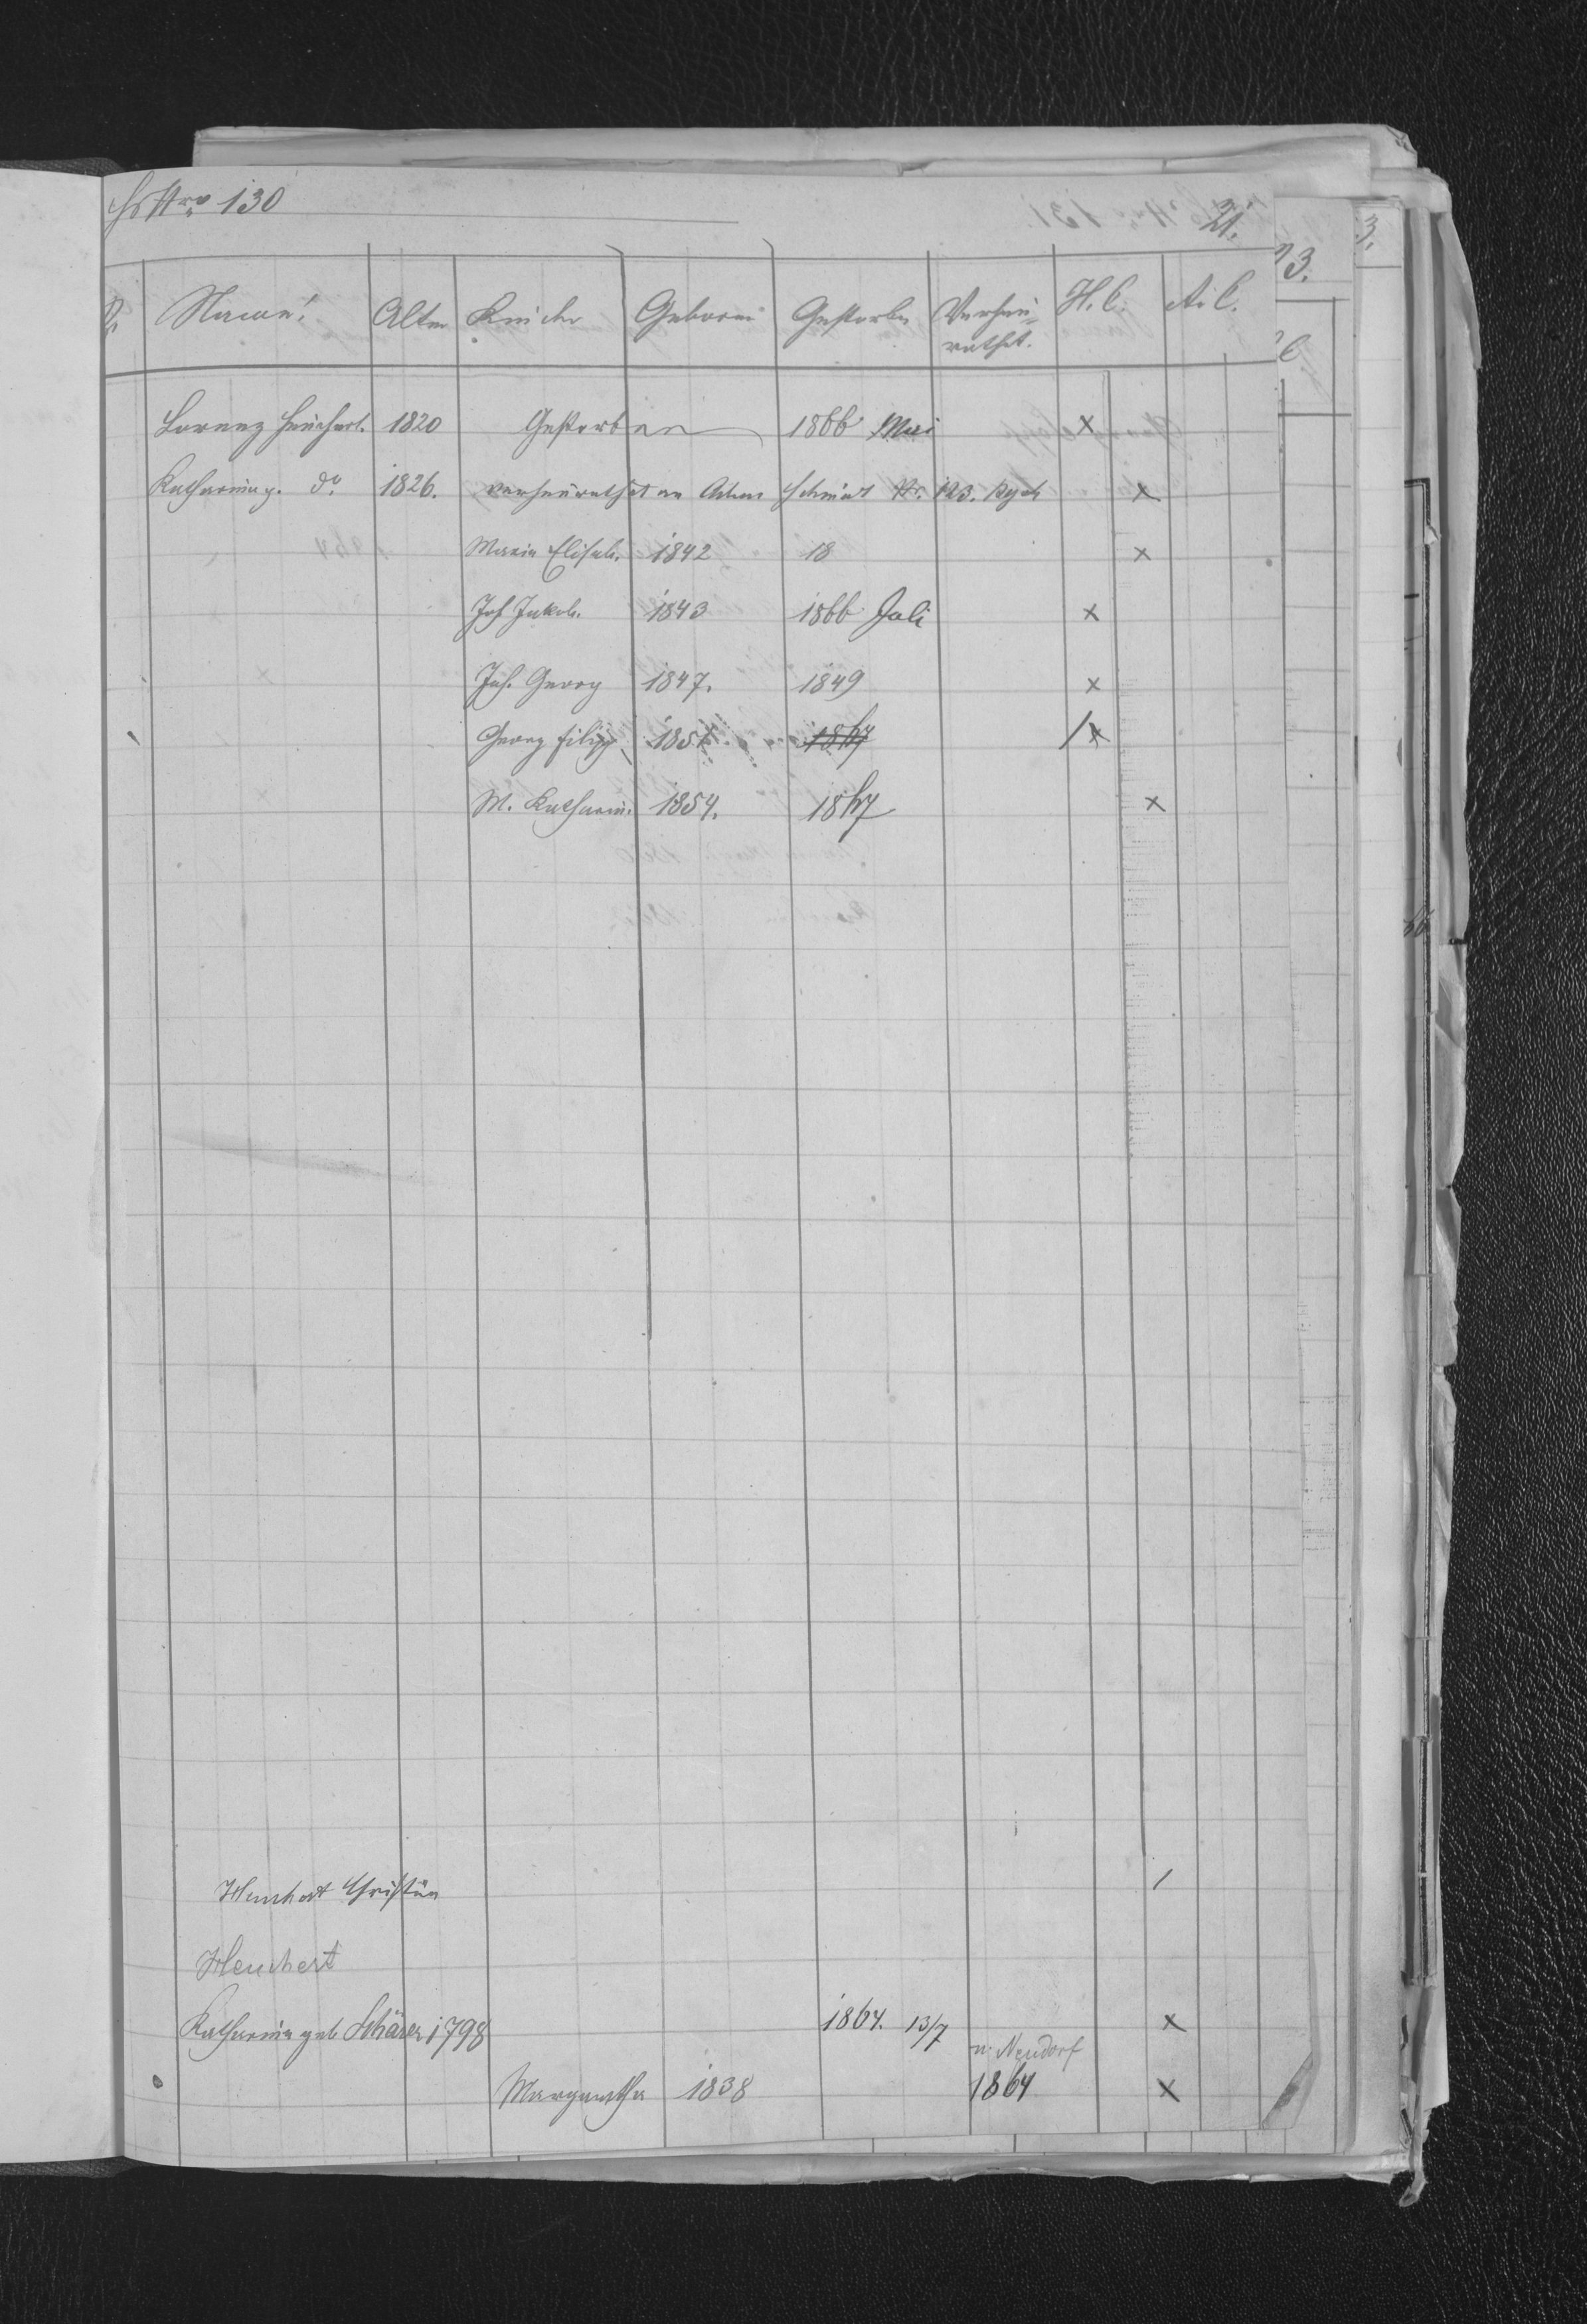 Hs Nro 130
21.
Name! Alter Kinder Geboren Gestorben Verheu-
rathet. H. C. A. C.
Lorenz Heuchert. 1820 Gestorben 1866 Mai x
Katharina g. do. 1826. verheurathet an Adam Schmidt Nr. 123. x
Maria Elisab. 1842 18 x
Joh Jakob. 1843 1866 Juli x
Joh. Georg 1847. 1849 x
Georg Filipp 1851. 1867 /x
M. Katharin. 1854. 1867 x
Heuchert Christian /
Heuchert
Katharina geb Schärer 1798 1864. 13/7 x
n. Neudorf
Margaretha 1838 1864 x